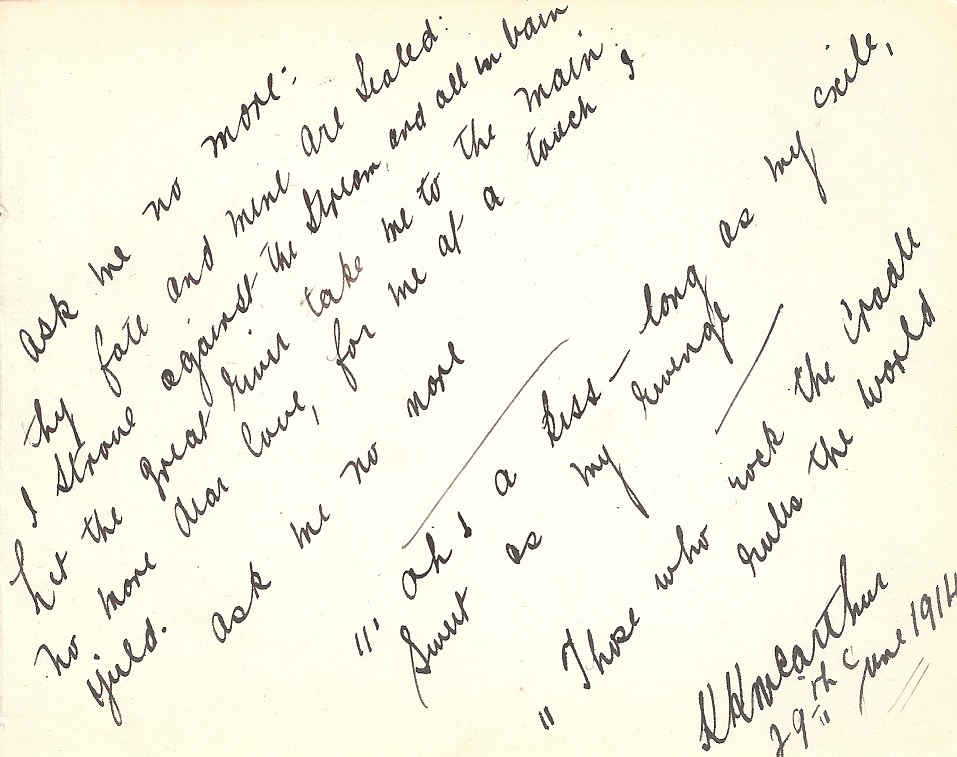 ask me no more:
thy fate and mine are sealed:
I strove against the stream, and all in vain
Let the great river take me to the main;
no more dear love, for me at a touch I
yield.
ask me no more
"' oh! a kiss - long as my exile,
Sweet as my revenge
"Those who rock the cradle
rules the world
KKmcarthur
29th June 1914